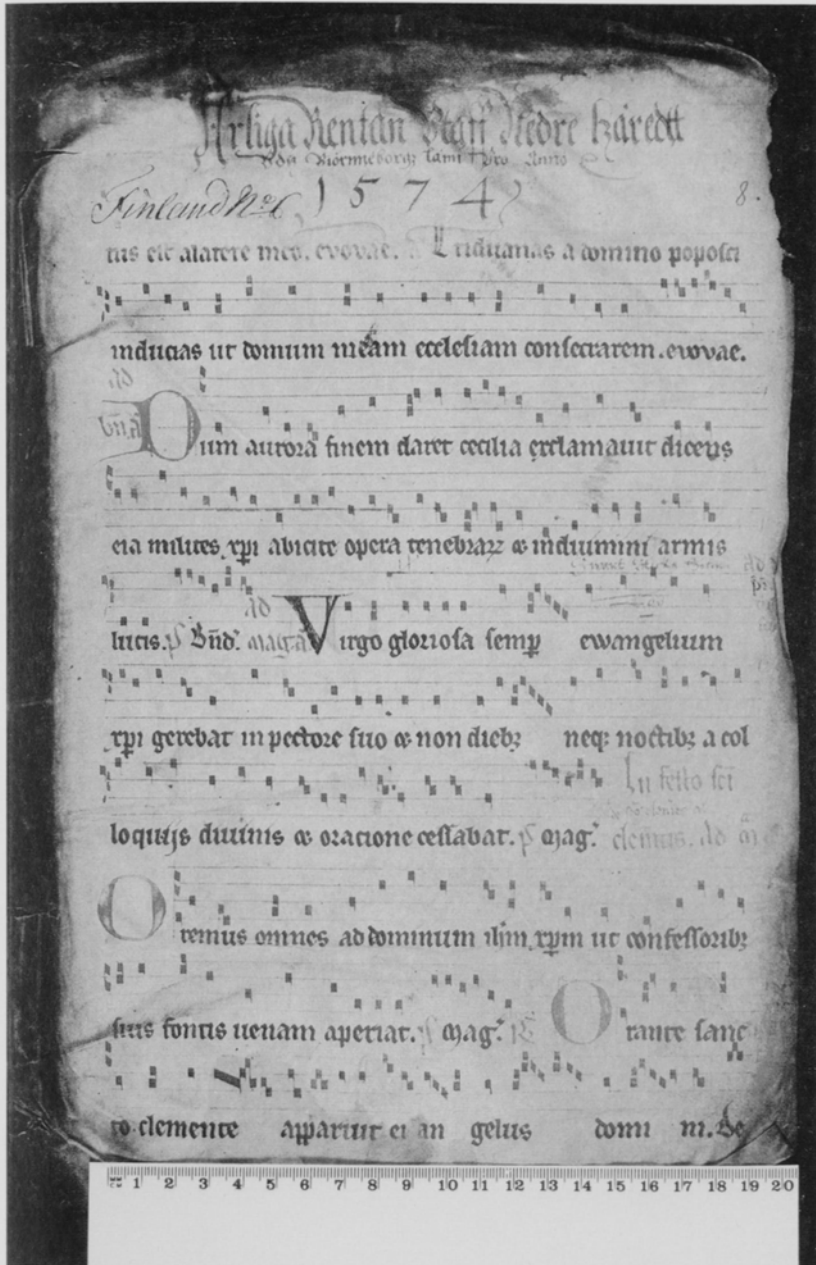 Årliga Rentan Nedre häredtt
Biörnneborgz Pro Anno
Finland No 6 1574 8.
tus est alatere meo. evovae. Triduanas a domino poposci
inducias ut domum meam ecclesiam consecrarem. evovae.
Dum aurora finem daret cecilia exclamauit dicens
eia milites xpi abicite opera tenebrarꝝ ⁊ induimini armis
lucis. ad magͣ Virgo gloriosa semꝑ ewangelium
xpi gerebat in pectore suo ⁊ non diebꝫ neqꝫ noctibꝫ a col
loquijs diuinis ⁊ oracione cessabat. p̄ Mag. In festo sci
clemtis. ad
Oremus omnes ad dominum ihm xpm ut confessoribꝫ
suis fontis uenam aperiat. p̄ Mag. R Orante sanc
to clemente apparuit ei an gelus domi ni. De
1 2 3 4 5 6 7 8 9 10 11 12 13 14 15 16 17 18 19 20